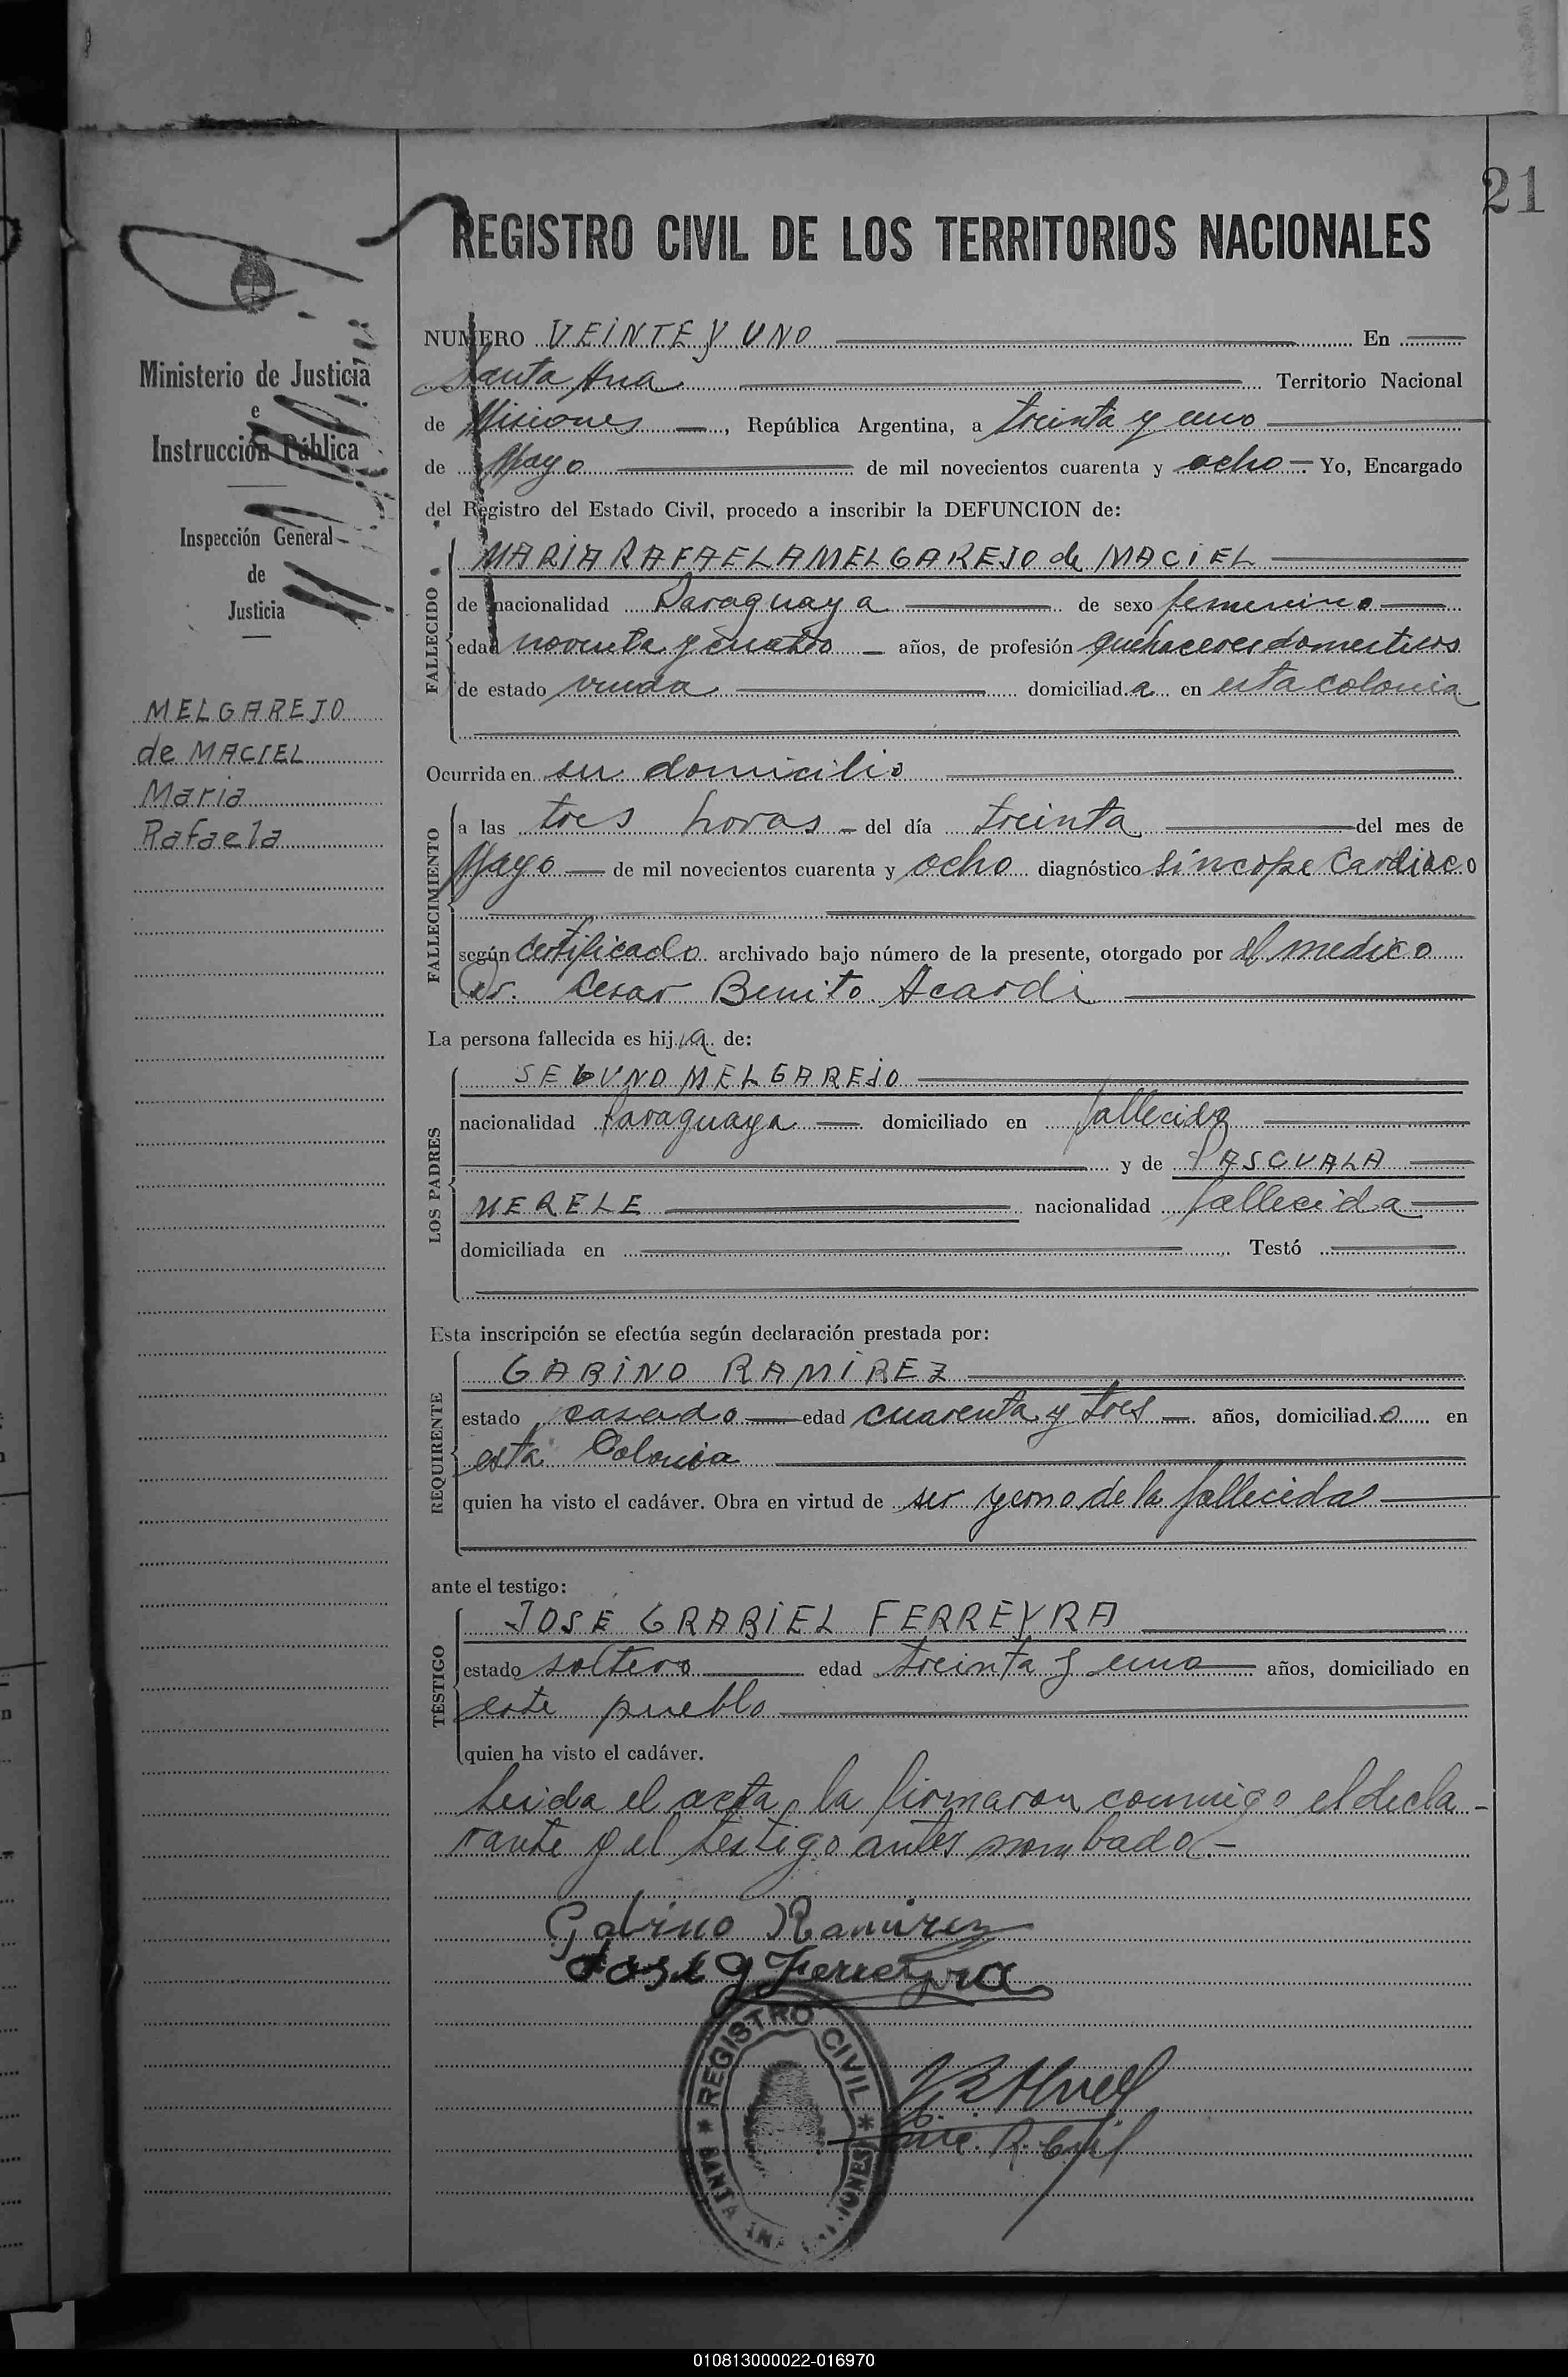 21
REGISTRO CIVIL DE LOS TERRITORIOS NACIONALES
Ministerio de Justicia
e
Instrucción Pública
Inspección General
de
Justicia
MELGAREJO
de MACIEL
Maria
Rafaela
NUMERO VEINTE Y UNO En
Santa Ana Territorio Nacional
de Misiones, República Argentina, a treinta y uno
de Mayo de mil novecientos cuarenta y ocho. Yo, Encargado
del Registro del Estado Civil, procedo a inscribir la DEFUNCION de:
FALLECIDO
MARIA RAFAELA MELGAREJO de MACIEL
de nacionalidad Paraguaya de sexo femenino
edad noventa y cuatro años, de profesión quehaceres domesticos
de estado viuda domiciliada en esta colonia
Ocurrida en su domicilio
FALLECIMIENTO
a las tres horas del día treinta del mes de
Mayo de mil novecientos cuarenta y ocho diagnóstico síncope Cardiaco
según Certificado archivado bajo número de la presente, otorgado por el medico
Dr. Cesar Benito Acardi
La persona fallecida es hija de:
LOS PADRES
SEGUNO MELGAREJO
nacionalidad Paraguaya domiciliado en fallecido
y de PASCUALA
MERELE nacionalidad fallecida
domiciliada en Testó
Esta inscripción se efectúa según declaración prestada por:
REQUIRENTE
GABINO RAMIREZ
estado casado edad cuarenta y tres años, domiciliado en
esta Colonia
quien ha visto el cadáver. Obra en virtud de ser yerno de la fallecida
ante el testigo:
TESTIGO
JOSÉ GRABIEL FERREYRA
estado soltero edad treinta y uno años, domiciliado en
este pueblo
quien ha visto el cadáver.
Leida el acta, la firmaron conmigo el decla-
rante y el testigo antes nombado-
Gabino Ramirez
Jose G Ferreyra
REGISTRO CIVIL
010813000022-016970